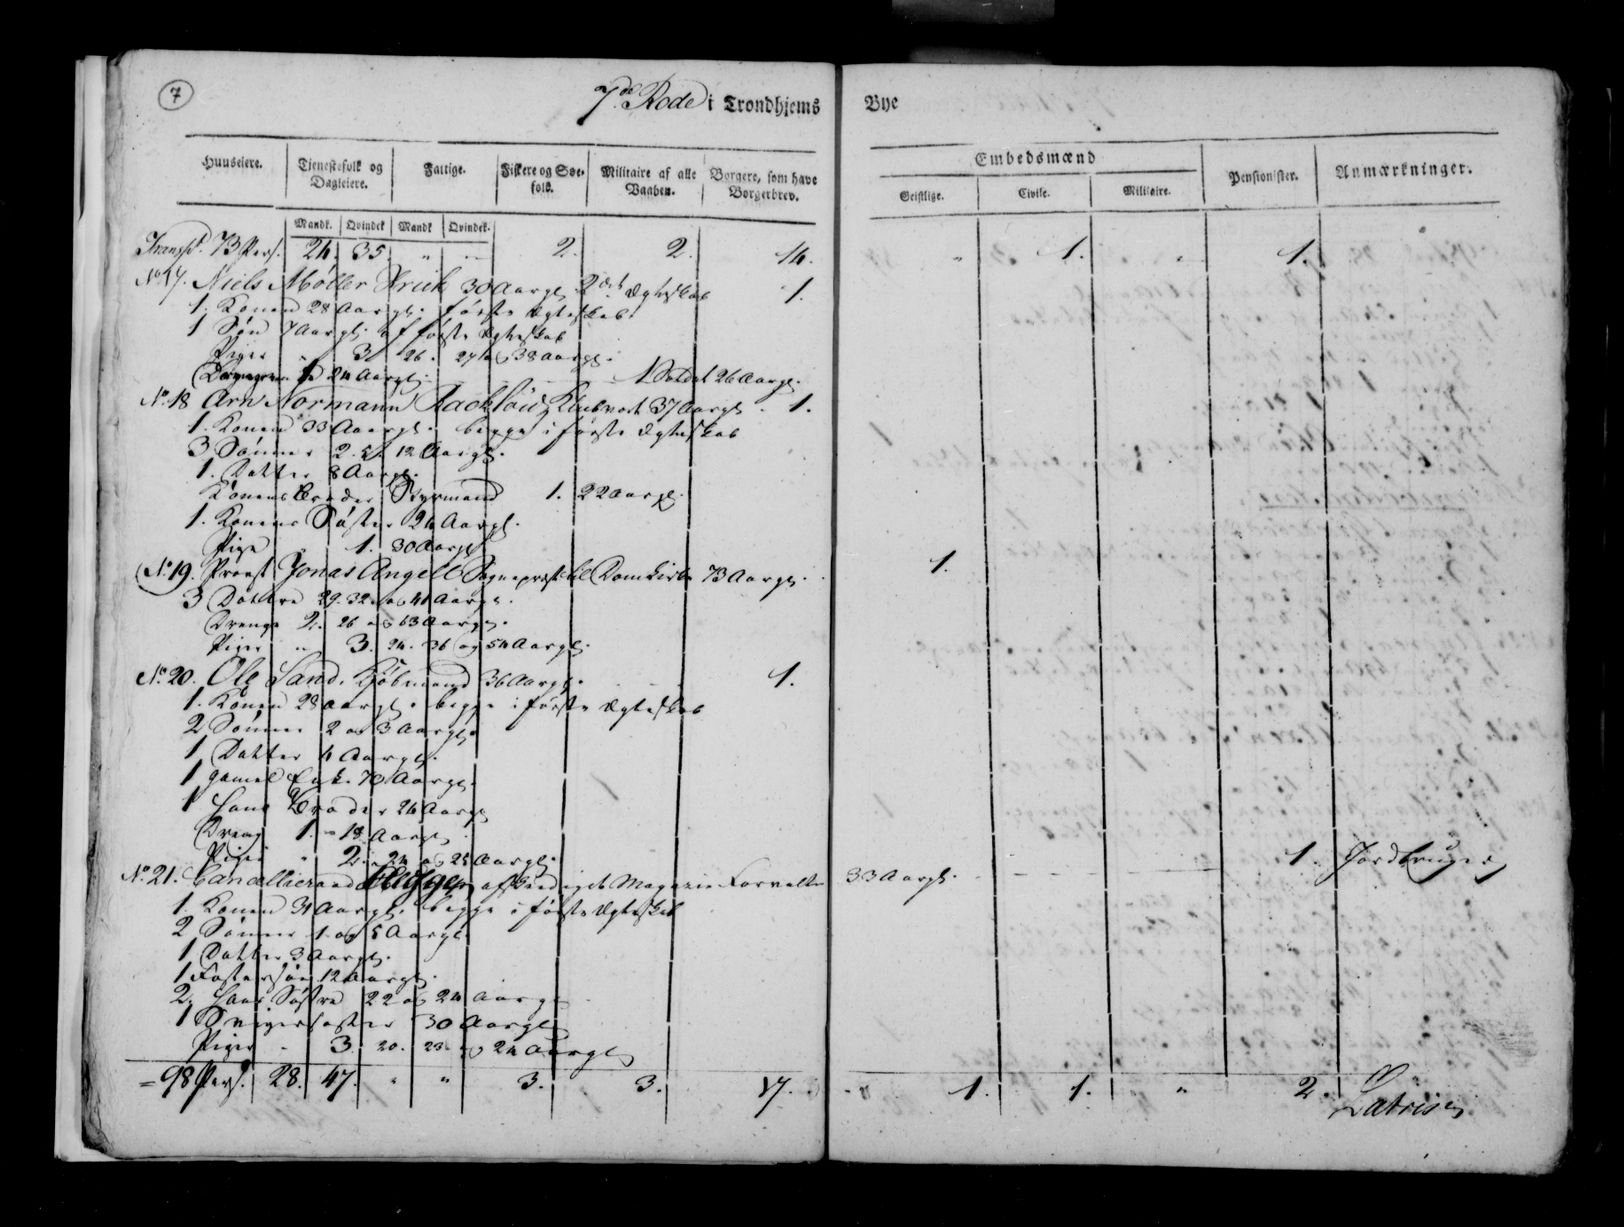 7
7de Rode i Trondhjems Bye
Huuseiere. Tjenestefolk og Dagleiere. Fattige. Fiskere og Søefolk. Militaire af alle Vaaben. Borgere, som have Borgerbrev. Embedsmænd Pensionister. Anmærkninger.
Geistlige. Civile. Militaire.
Mandk. Qvindek Mandk Qvindek.
Transpt. 73 Pers. 24. 35. " " 2. 2. 14. " 1. " 1.
No. 17. Niels Møller 30 Aargl. 2det Ægteskab 1.
1. Konen 28 Aargl. første Ægteskab.
1 Søn 7 Aargl. af første Ægteskab
Piger " 3 26. 27 og 38 Aargl.
24 Aargl. 1 Soldat 26 Aargl.
No. 18 Arn Normann 37 Aargl. 1.
1. Konen 33 Aargl. begge i første Ægteskab
3 Sønner 2. 5. 12 Aargl.
1. Datter 8 Aargl.
Konens Broder Styrmand 1. 22 Aargl.
1. Konens Søster 24 Aargl.
Pige 1. 30 Aargl
No. 19. Provst Jonas Angell Sognepræst til Domkirken 73 Aargl. 1.
3 Døttre 29. 32 og 41 Aargl.
Drenge 2. 26 og 63 Aargl.
Piger " 3. 24. 36 og 54 Aargl.
No. 20. Ole Sand. Kjøbmand 36 Aargl. 1.
1. Konen 28 Aargl. begge i første Ægteskab
2 Sønner 2 og 3 Aargl.
1 Datter 4 Aargl.
1 gamel Enke 70 Aargl.
1 Hans Broder 24 Aargl
Dreng 1. " 18 Aargl
Piger " 2. 24 og 28 Aargl.
No. 21. Cancellieraad afskediget Magazin Forvalter 33 Aargl. 1. Jordbruger
1. Konen 31 Aargl. begge i første Ægteskab
2 Sønner 1 og 5 Aargl
1 Datter 3 Aargl.
1 Fostersøn 12 Aargl.
2 Hans Søstre 22 og 24 Aargl
1 Svigersøster 30 Aargl
Piger " 3. 20. 23 og 24 Aargl
= 98 Pers. 28. 47. " " 3. 3. 17. 1. 1. " 2. Latris